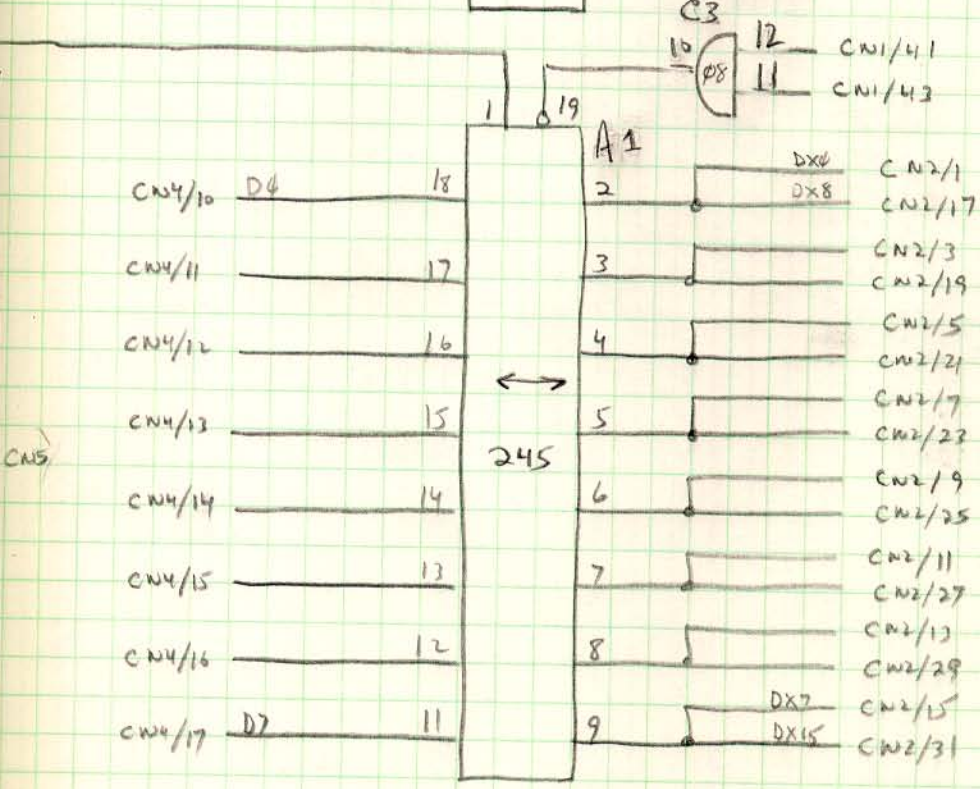 C3
10 Ø8 12 CN1/41
11 CN1/43
1 19
A1
CN4/10 DØ 18 2 DXØ CN2/1
DX8 CN2/17
CN4/11 17 3 CN2/3
CN2/19
CN4/12 16 4 CN2/5
CN2/21
CN4/13 15 5 CN2/7
CN2/23
CN5 245
CN4/14 14 6 CN2/9
CN2/25
CN4/15 13 7 CN2/11
CN2/27
CN4/16 12 8 CN2/13
CN2/29
CN4/17 D7 11 9 DX7 CN2/15
DX15 CN2/31